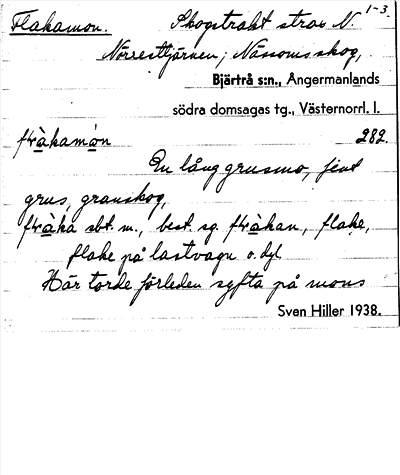 Flakamon. Skogstrakt strax N. 1-3.
Norresttjärnen; Nässoms skog,
Bjärtrå s:n., Ångermanlands
södra domsagas tg., Västernorrl. l.
flràkamòn 282.
En lång grusmo, fint
grus, granskog,
flràka sbt. m., best. sg. flràkan, flake,
flake på lastvagn o. dyl.
Här torde förleden syfta på mons
Sven Hiller 1938.